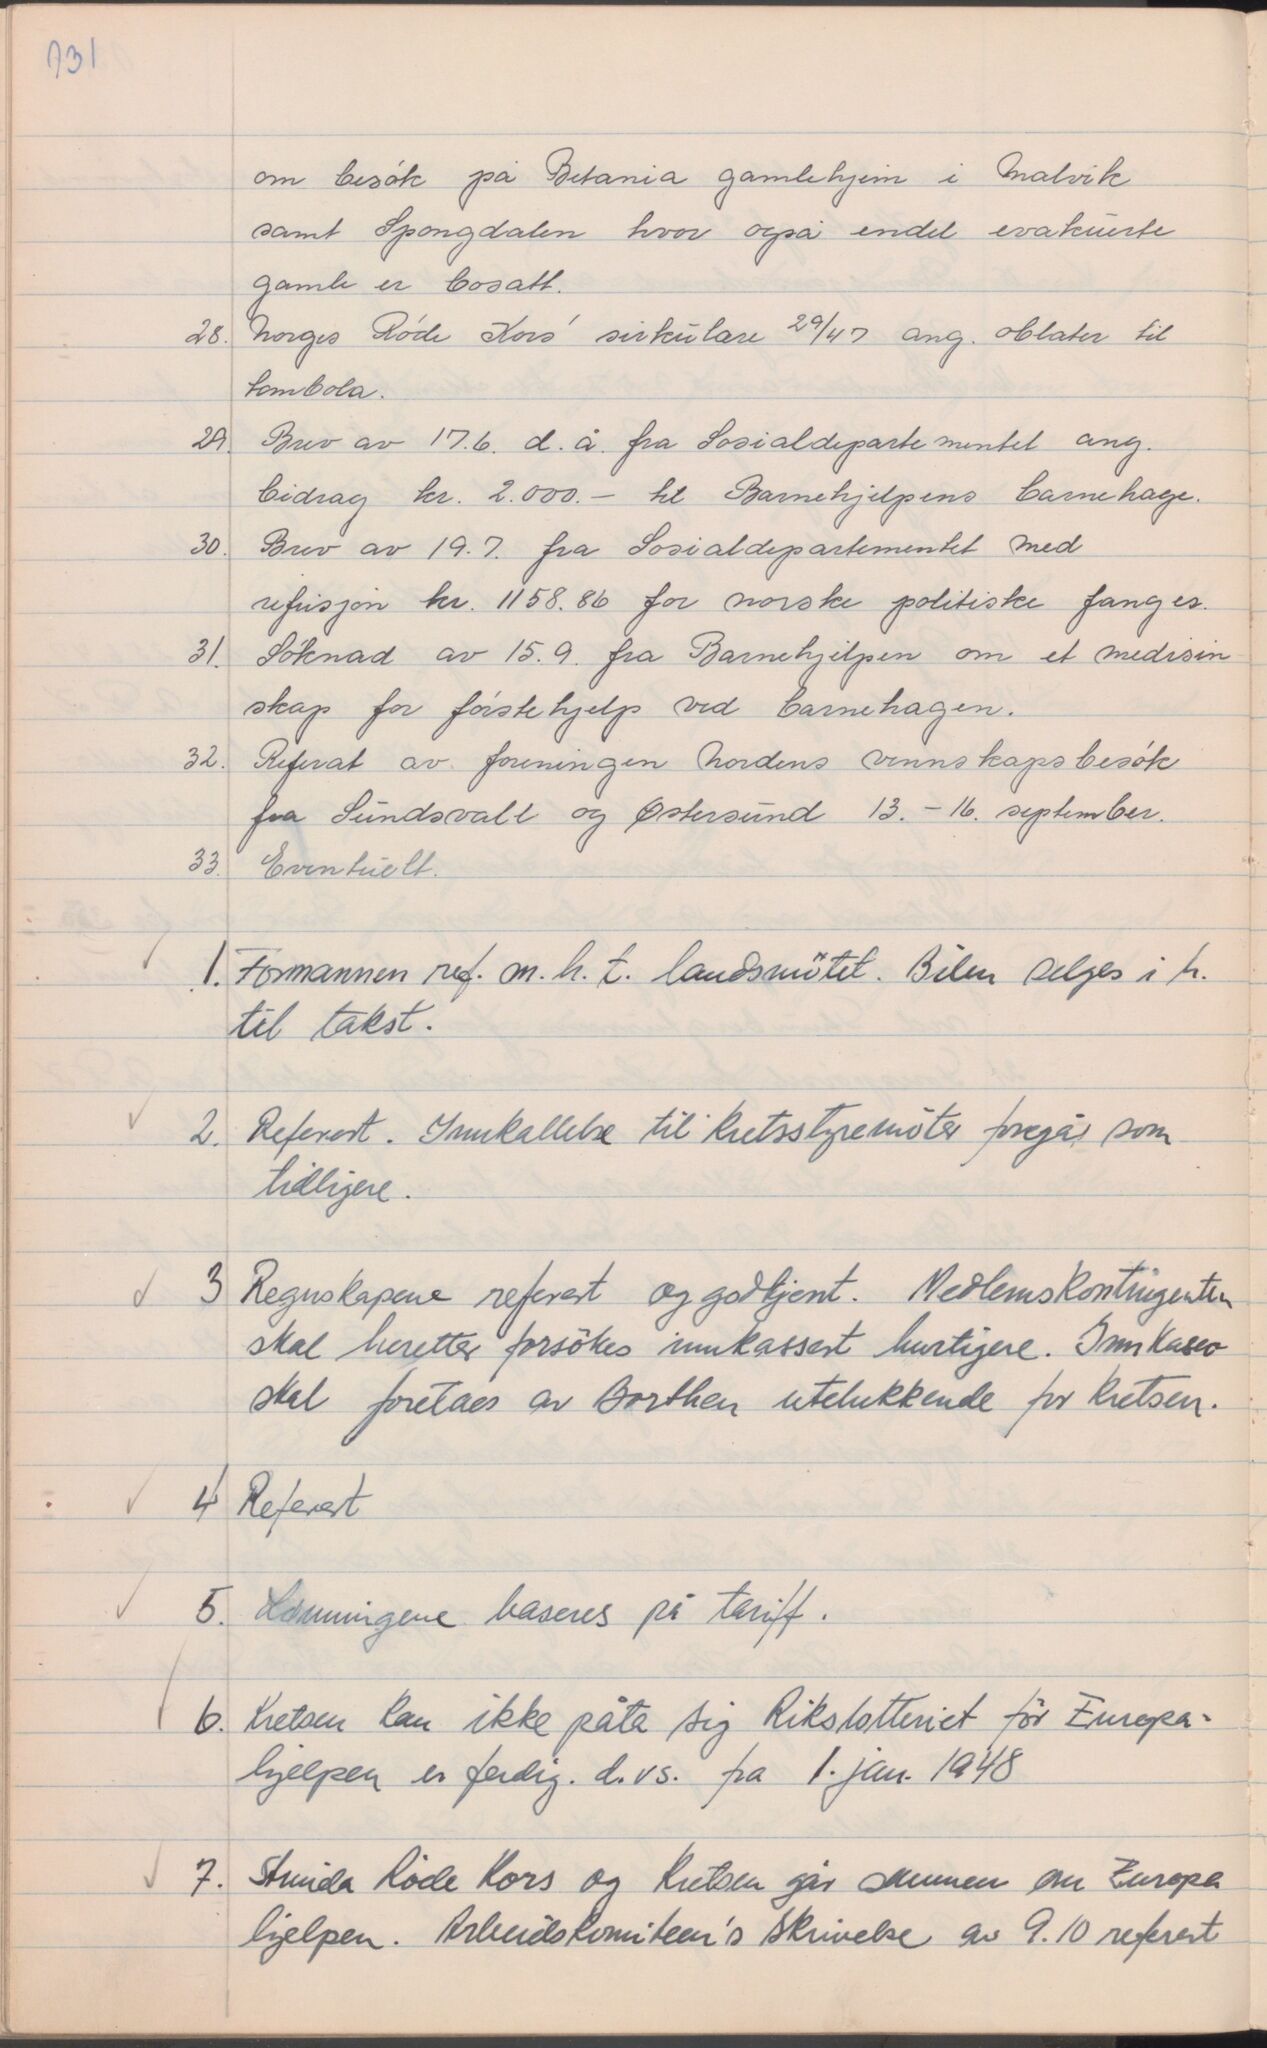 131
om besök på Betania gamlehjem i Malvik
samt Spongdalen hvor også endel evakuerte
gamle er bosatt.
28. Norges Röde Kors' sirkulære 29/47 ang. oblater til
tombola.
29. Brev av 17.6. d. å. fra Sosialdepartementet ang.
bidrag kr. 2.000.- til Barnehjelpens barnehage.
30. Brev av 19.7. fra Sosialdepartementet med
refusjon kr. 1158.86 for norske politiske fanger.
31. Söknad av 15.9. fra Barnehjelpen om et medisin
skap for förstehjelp ved barnehagen.
32. Referat av foreningen Nordens vennskapsbesök
fra Sundsvall og Östersund 13.-16. september.
33. Eventuelt.
1. Formannen ref. m.h.t. landsmötet. Bilen selges i h.
til takst.
2. Referert. Innkallelse til kretsstyremöter foregår som
tidligere.
3 Regnskapene referert og godkjent. Medlemskontingenten
skal heretter forsökes innkassert hurtigere. Innkasso
skal foretaes av Borthen utelukkende for kretsen.
4 Referert
5. Lönningene baseres på tariff.
6. Kretsen kan ikke påta sig Rikslotteriet för Europa-
hjelpen er ferdig. d.vs. fra 1. jan. 1948
7. Strinda Röde Kors og kretsen går sammen om Europa
hjelpen. Arbeidskomiteen's skrivelse av 9.10 referert